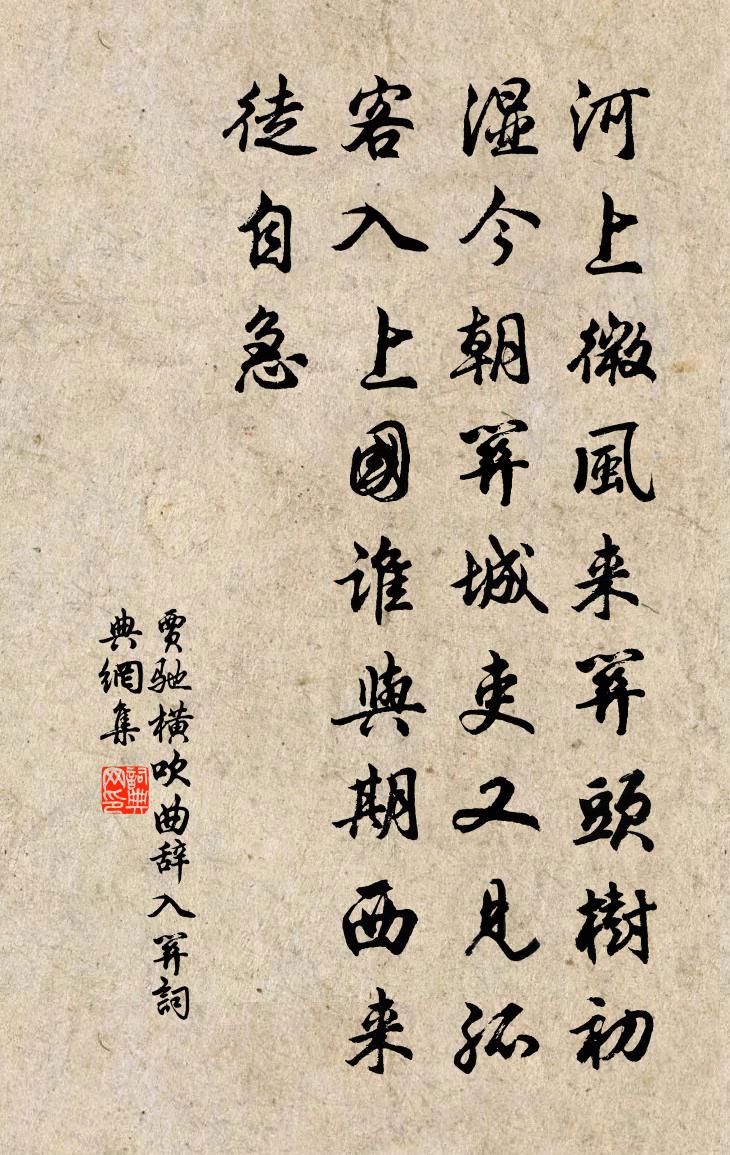 河上微風来関頭樹初
湿今朝関城吏又見孤
客入上國誰與期西来
徒自急
賈馳横吹曲辞入関詞
典網集
詞典
网印